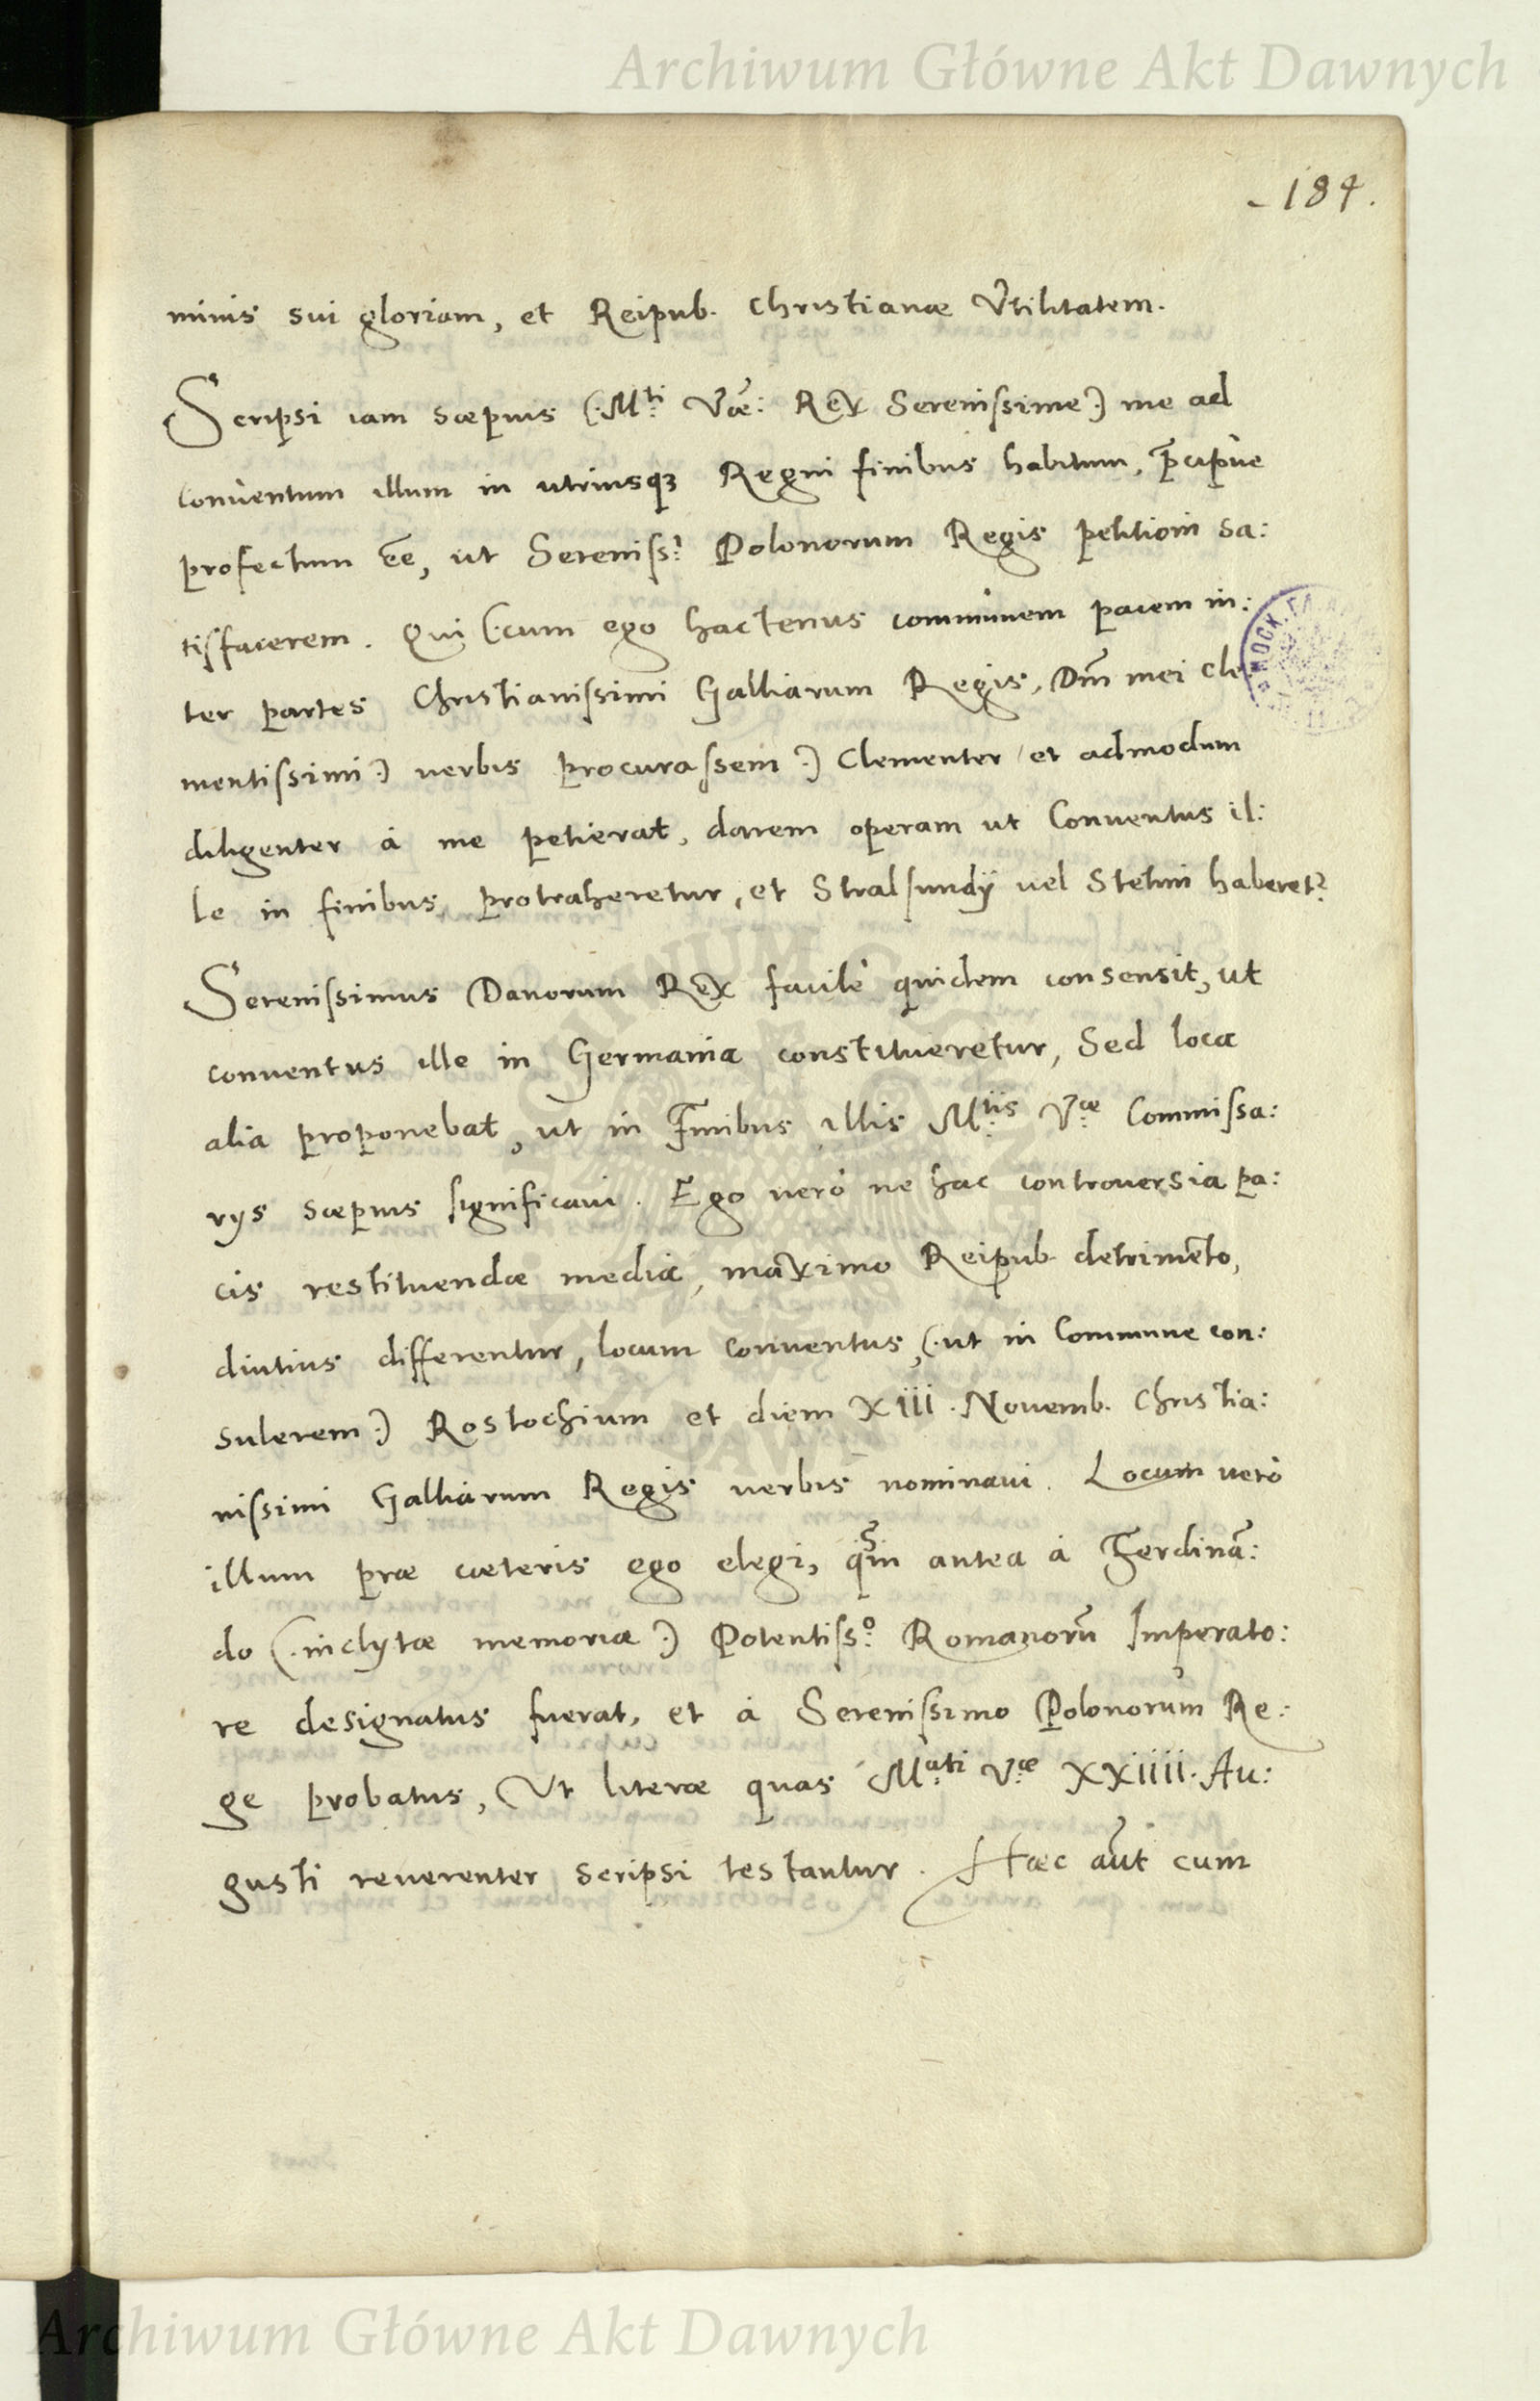 Archiwum Główne Akt Dawnych
184.
minis sui gloriam, et Reipub. Christianæ Vtilitatem.
Scripsi iam sæpius (:M.ti V̄æ: Rex Serenissime:) me ad
conuentum illum in utriusq₃ Regni finibus habitum, p̄cipùe
profectum ēē, ut Sereniss.i Polonorum Regis petitioni sa:
tisfacerem. Qui (:cum ego hactenus communem pacem in:
ter partes Christianissimi Galliarum Regis, Dm̄ mei cle
mentissimi:) uerbis procurassem:) Clementer et admodum
diligenter à me petierat, darem operam ut Conuentus il:
le in finibus protraheretur, et Stralsundÿ uel Stetini haberet
Serenissimus Danorum Rex facilè quidem consensit, ut
conuentus ille in Germania constitueretur, Sed loca
alia proponebat, ut in Finibus illis M.tis V.æ Commissa:
rys sæpius significaui. Ego uerò ne hac controuersia pa:
cis restituendæ media, maximo Reipub. detrimēto,
diutius differentur, locum conuentus, (:ut in Commune con:
sulerem:) Rostochium et diem XIII. Nouemb. Christia:
nissimi Galliarum Regis uerbis nominaui. Locum uerò
illum præ cæteris ego elegi, qm̄ antea à Ferdinā:
do (:inclytæ memoriæ:) Potentiss.o Romanorū Imperato:
re designatus fuerat, et à Serenissimo Polonorum Re:
ge probatus, Vt literæ quas M.ati V.æ XXIIII. Au:
gusti reuerenter scripsi testantur. Hæc aūt cum
Archiwum Główne Akt Dawnych